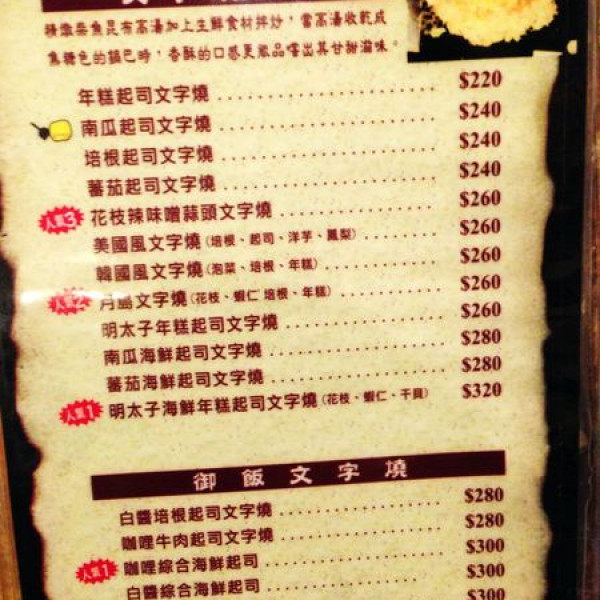 精燉柴魚昆布高湯加上生鮮食材拌炒，當高湯收乾成
焦糖色的鍋巴時，香酥的口感更能品嚐出其甘甜滋味。
年糕起司文字燒 $220
南瓜起司文字燒 $240
培根起司文字燒 $240
蕃茄起司文字燒 $240
人氣3 花枝辣味噌蒜頭文字燒 $260
美國風文字燒(培根、起司、洋芋、鳳梨) $260
韓國風文字燒(泡菜、培根、年糕) $260
人氣2 月島文字燒(花枝、蝦仁 培根、年糕) $260
明太子年糕起司文字燒 $260
南瓜海鮮起司文字燒 $280
蕃茄海鮮起司文字燒 $280
人氣1 明太子海鮮年糕起司文字燒(花枝、蝦仁、干貝) $320
御飯文字燒
白醬培根起司文字燒 $280
咖哩牛肉起司文字燒 $280
人氣1 咖哩綜合海鮮起司 $300
白醬綜合海鮮起司 $300
$300